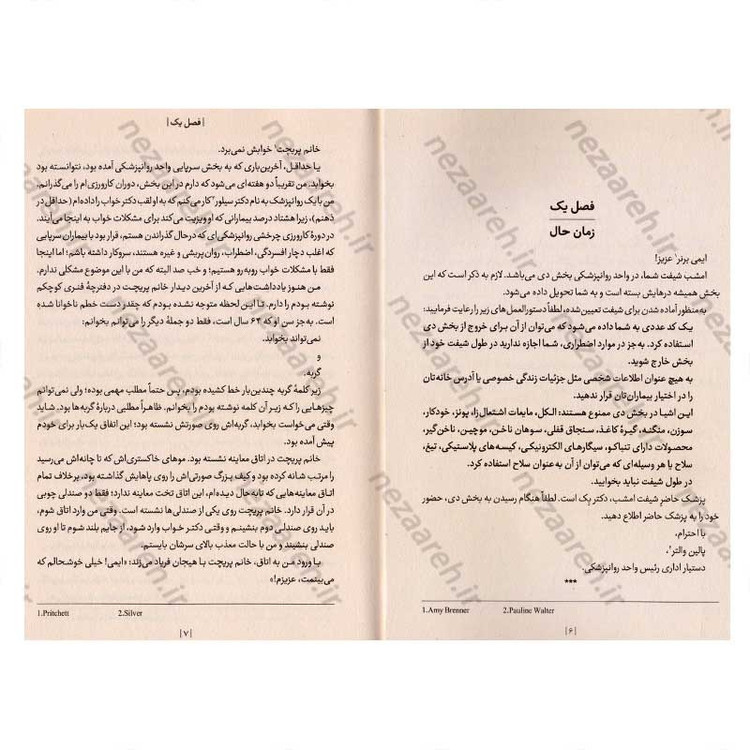 فصل یک
زمان حال
ایمی برنر¹ عزیز!
امشب شیفت شما، در واحد روانپزشکی بخش دی می‌باشد. لازم به ذکر است که این
بخش همیشه درهایش بسته است و به شما تحویل داده می‌شود.
به‌منظور آماده شدن برای شیفت تعیین‌شده، لطفاً دستورالعمل‌های زیر را رعایت فرمایید:
یک کد عددی به شما داده می‌شود که می‌توان از آن برای خروج از بخش دی
استفاده کرد. به‌جز در موارد اضطراری، شما اجازه ندارید در طول شیفت خود از
بخش خارج شوید.
به هیچ عنوان اطلاعات شخصی مثل جزئیات زندگی خصوصی یا آدرس خانه‌تان
را در اختیار بیماران‌تان قرار ندهید.
این اشیا در بخش دی ممنوع هستند: الکل، مایعات اشتعال‌زا، پونز، خودکار،
سوزن، منگنه، گیرهٔ کاغذ، سنجاق قفلی، سوهان ناخن، موچین، ناخن‌گیر،
محصولات دارای تنباکو، سیگارهای الکترونیکی، کیسه‌های پلاستیکی، تیغ،
سلاح یا هر وسیله‌ای که می‌توان از آن به‌عنوان سلاح استفاده کرد.
در طول شیفت نباید بخوابید.
پزشک حاضرِ شیفت امشب، دکتر بک است. لطفاً هنگام رسیدن به بخش دی، حضور
خود را به پزشک حاضر اطلاع دهید.
با احترام،
پالین والتر²،
دستیار اداری رئیس واحد روانپزشکی.
***
1.Amy Brenner 2.Pauline Walter
|۶|
|فصل یک|
خانم پریچت¹ خوابش نمی‌برد.
یا حداقل، آخرین‌باری که به بخش سرپایی واحد روانپزشکی آمده بود، نتوانسته بود
بخوابد. من تقریباً دو هفته‌ای می‌شود که دارم در این بخش، دوران کارورزی‌ام را می‌گذرانم.
من با یک روانپزشک به نام دکتر سیلور² کار می‌کنم که به او لقب دکتر خواب را داده‌ام (حداقل در
ذهنم)، زیرا هشتاد درصد بیمارانی که او ویزیت می‌کند برای مشکلات خواب به اینجا می‌آیند.
در دورهٔ کارورزی چرخشی روانپزشکی‌ای که درحال گذراندن هستم، قرار بود با بیماران سرپایی
که اغلب دچار افسردگی، اضطراب، روان‌پریشی و غیره هستند، سروکار داشته باشم؛ اما اینجا
فقط با مشکلات خواب روبه‌رو هستیم؛ و خب صد البته که من با این موضوع مشکلی ندارم.
من هنوز یادداشت‌هایی که از آخرین دیدار خانم پریچت در دفترچهٔ فنری کوچکم
نوشته بودم را دارم. تا این لحظه متوجه نشده بودم که چقدر دست خطم ناخوانا شده
است. به‌جز سن او که ۶۴ سال است، فقط دو جملهٔ دیگر را می‌توانم بخوانم:
نمی‌تواند بخوابد.
و
گربه.
زیر کلمهٔ گربه چندین‌بار خط کشیده بودم، پس حتماً مطلب مهمی بوده؛ ولی نمی‌توانم
چیزهایی را که زیر آن کلمه نوشته بودم را بخوانم. ظاهراً مطلبی دربارهٔ گربه‌ها بود. شاید
وقتی می‌خواست بخوابد، گربه‌اش روی صورتش نشسته بود؛ این اتفاق یک‌بار برای خودم
پیش آمده بود.
خانم پریچت در اتاق معاینه نشسته بود. موهای خاکستری‌اش که تا چانه‌اش می‌رسید
را مرتب شانه کرده بود و کیف بزرگ صورتی‌اش را روی پاهایش گذاشته بود. برخلاف تمام
اتاق معاینه‌هایی که تابه‌حال دیده‌ام، این اتاق تخت معاینه ندارد؛ فقط دو صندلی چوبی
در آن قرار دارد. خانم پریچت روی یکی از صندلی‌ها نشسته است. وقتی من وارد اتاق شوم،
باید روی صندلی دوم بنشینم و وقتی دکتر خواب وارد شود، از جایم بلند شوم تا او روی
صندلی بنشیند و من با حالت معذب بالای سرشان بایستم.
با ورود من به اتاق، خانم پریچت با هیجان فریاد می‌زند: «ایمی! خیلی خوشحالم که
می‌بینمت، عزیزم!»
1.Pritchett 2.Silver
|۷|
nezaareh.ir